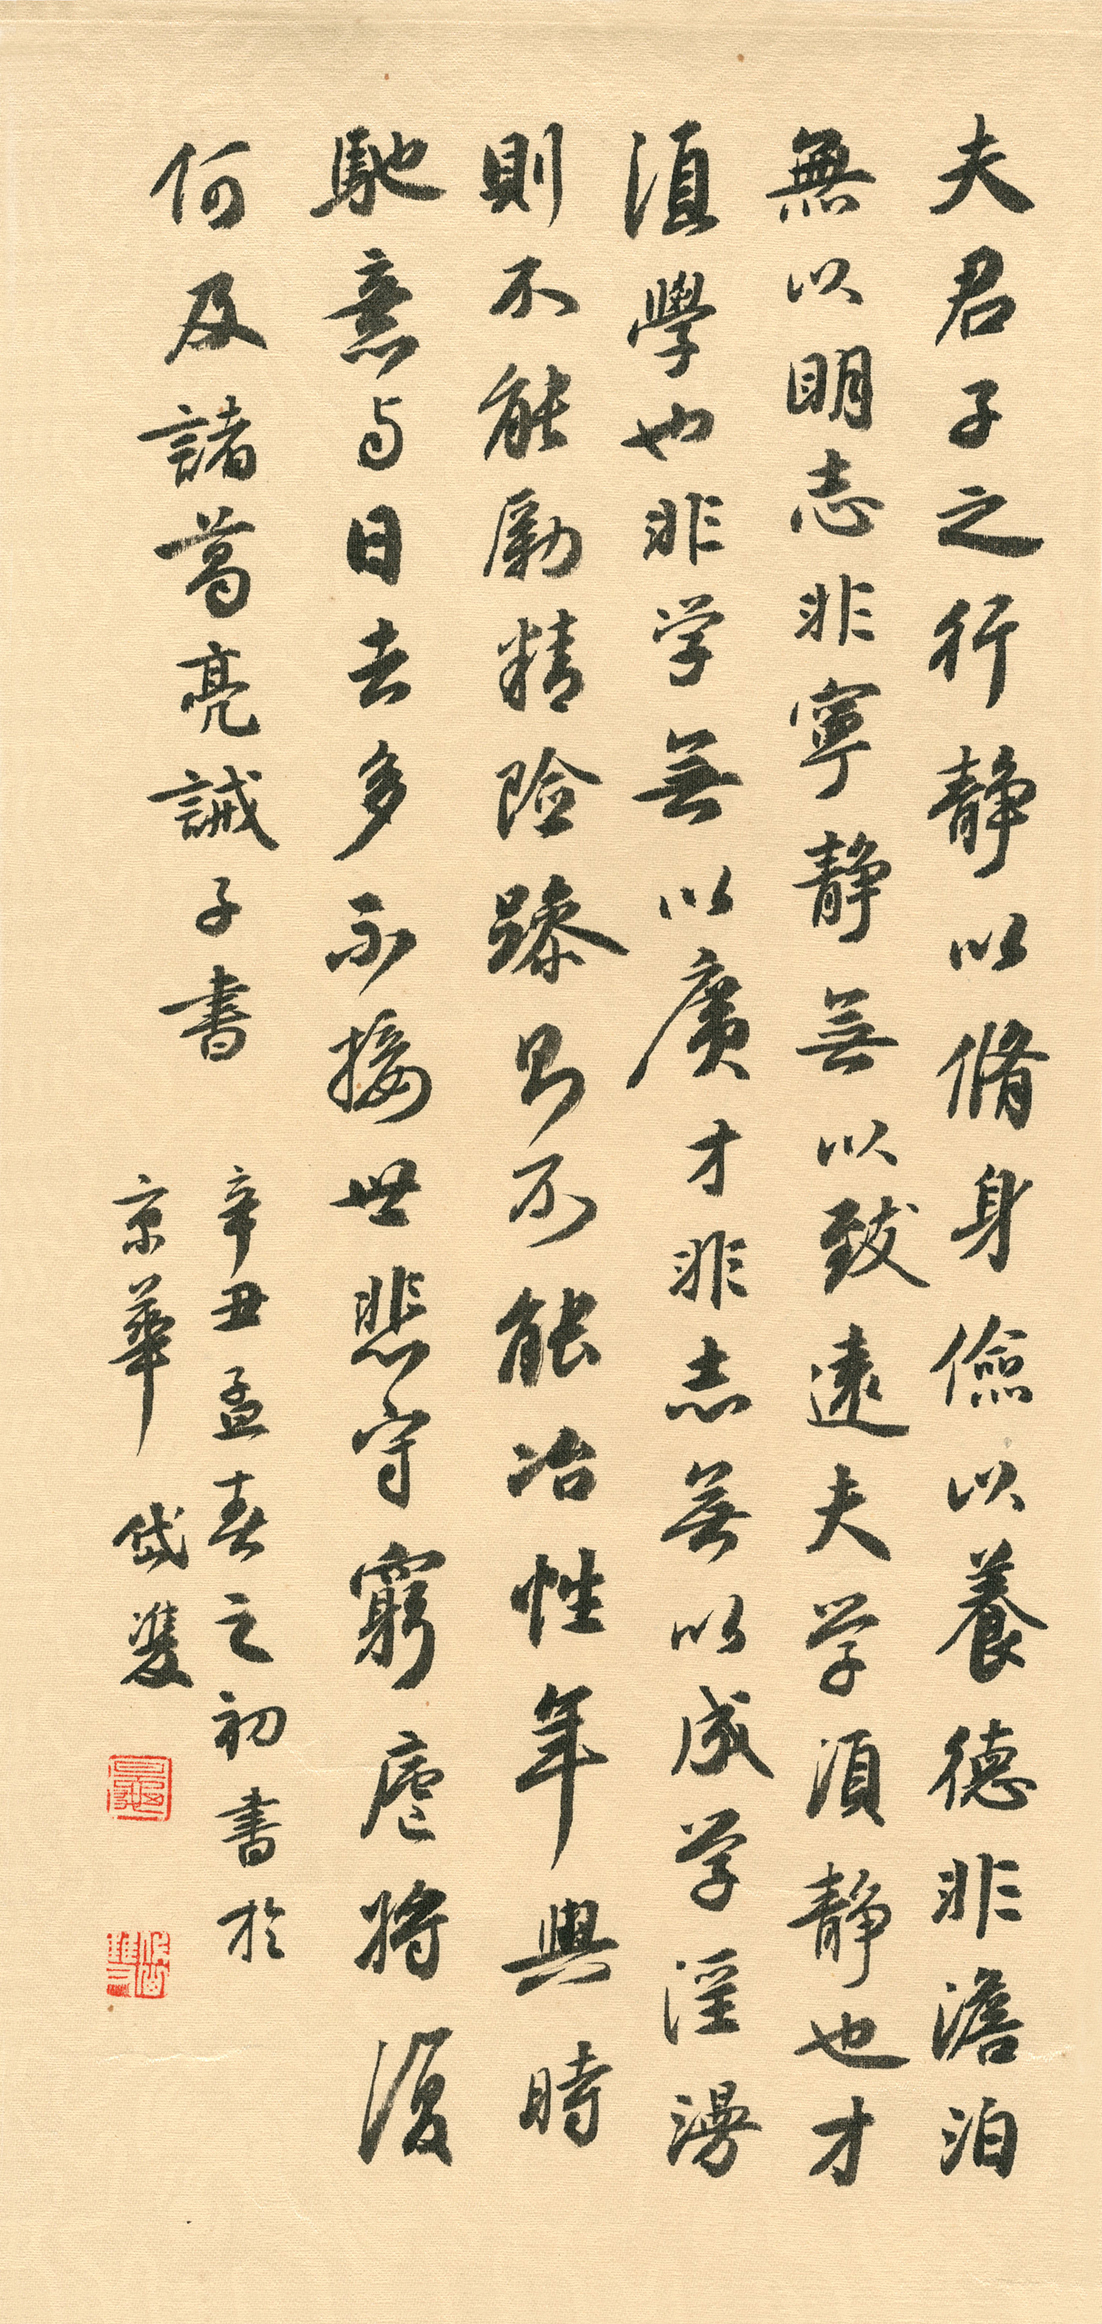 夫君子之行静以脩身儉以養德非澹泊
無以明志非寧静無以致遠夫学須静也才
須學也非学無以廣才非志無以成学淫漫
則不能勵精險躁則不能冶性年與時
馳意与日去多不接世悲守窮廬將復
何及諸葛亮誡子書
辛丑孟春之初書於
京華 岱雙